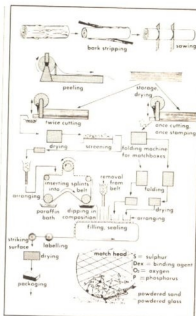 bark stripping
sawing
peeling
storage,
drying
twice cutting
once cutting,
once stamping
drying
screening
folding machine
for matchboxes
arranging
inserting splints
into belt
removal
from
belt
folding
drying
paraffin
bath
dipping in
composition
arranging
filling, sealing
striking
surface
labelling
drying
packaging
match head
S = sulphur
Dex = binding agent
O₂ = oxygen
P = phosphorus
powdered sand
powdered glass